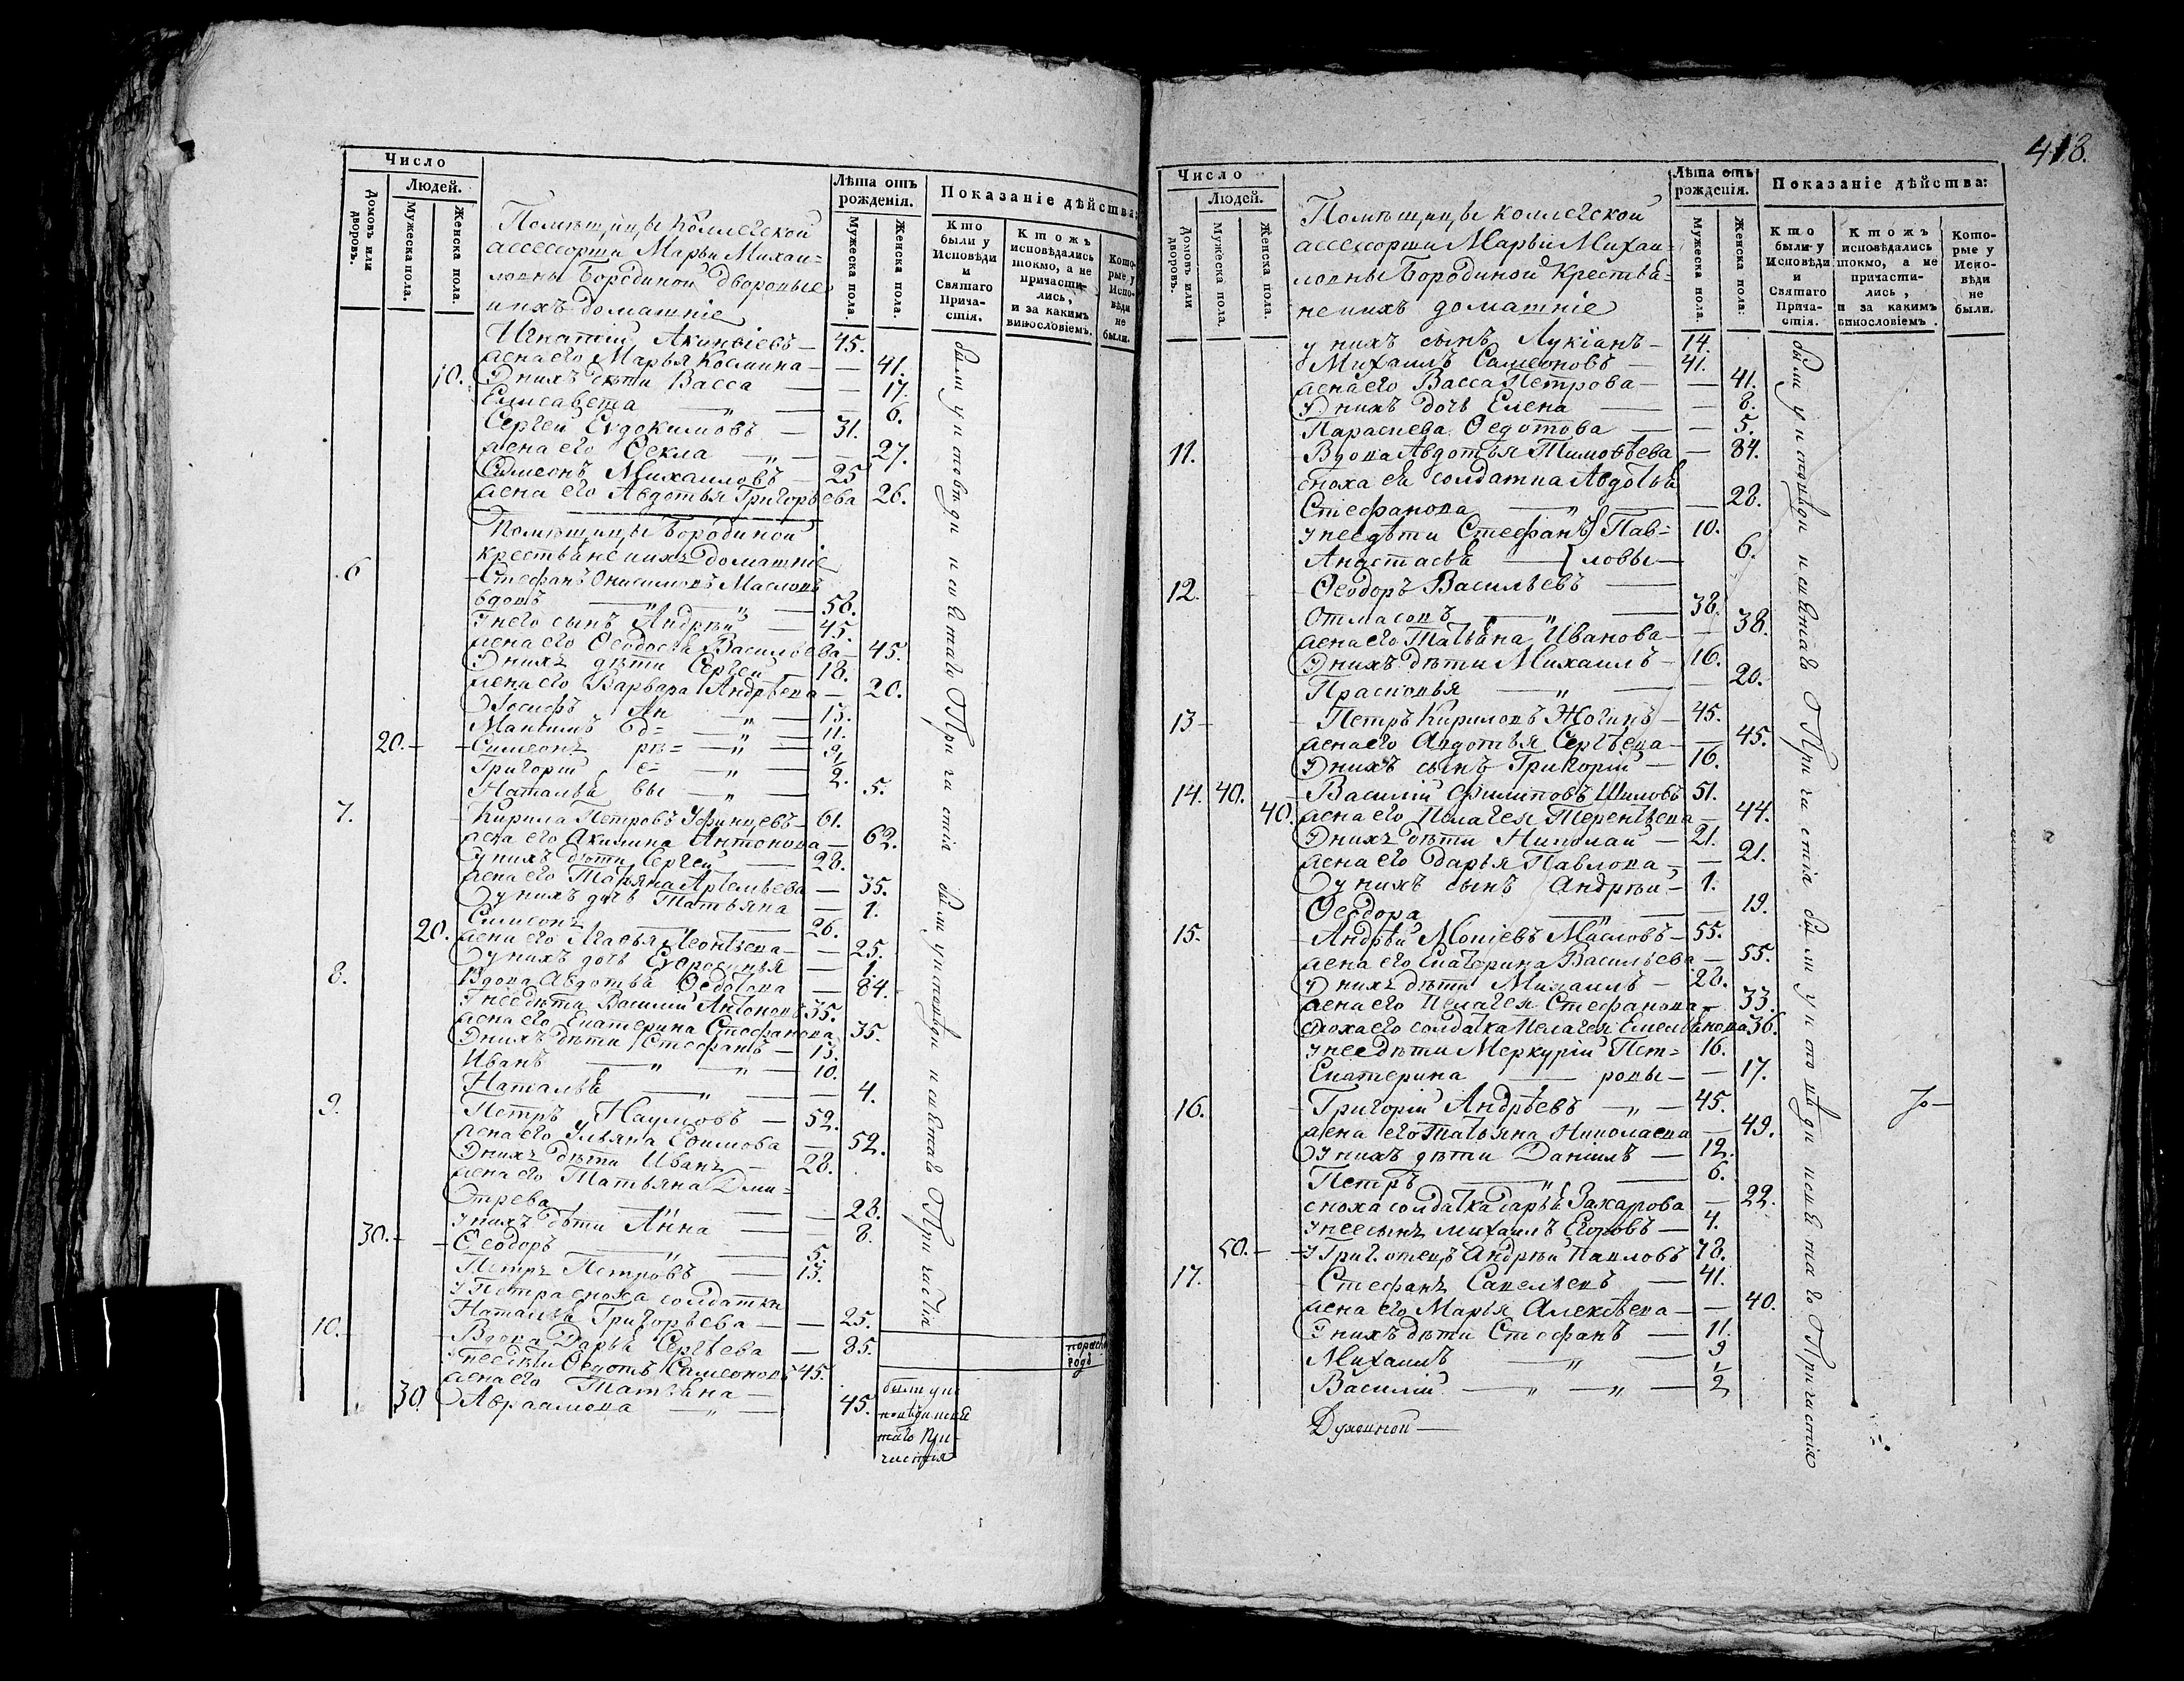 Число
Людей.
Домовъ или дворовъ.
Мужеска пола.
Женска пола.
Лѣта отъ рожденія.
Мужеска пола.
Женска пола.
Показаніе дѣйства:
Кто были у Исповѣди и Святаго Причастія.
Ктожъ исповѣдались токмо, а не причастились, и за какимъ винословіемъ.
Которые у Исповѣди не были.
Помѣщицы Коллегской
ассесорши Марьи Михаи=
ловны Бородиной дворовые
ихъ домашніе
Игнатій Акинѳіевъ — 45.
жена его Марья Космина — — 41.
10. У нихъ дѣти Васса — — 17.
Елисавета — „ — — 6.
Сергей Евдокимовъ — 31.
жена его Ѳекла — „ — — 27.
Симеонъ Михаиловъ — 25
жена его Авдотья Григорьева 26.
Помѣщицы Бородиной
крестьяне ихъ домашніе
6 Стефанъ Онисимовъ Масловъ
вдовъ — „ — „ — 58.
У него сынъ Андрѣй — 45.
жена его Ѳеодосья Васильева — 45.
У нихъ дѣти Сергей — 18.
жена его Варвара Андрѣева — 20.
Іосифъ Ан — „ — 13.
Максимъ д= — „ — 11.
20. — Симеонъ рѣ= — „ — 9
Григорій е= — „ — ½.
Наталья вы — „ — 5.
7. Кирила Петровъ — 61.
жена его Акилина Антонова — 62.
у нихъ дѣти Сергей — 28.
жена его Татьяна Артемьева — 35.
у нихъ дочь Татьяна — 1.
Симеонъ — 26.
20. жена его Марья Леонтьева — — 25.
у нихъ дочь Евфросинья — 1
8. Вдова Авдотья Ѳедотова — 84.
У нее дѣти Василій Антоновъ 35.
жена его Екатерина Стефанова 35.
У нихъ дѣти Стефанъ — 13.
Иванъ — „ — „ — 10.
Наталья — „ — — 4.
9. Петръ Наумовъ — 52.
жена его Ульяна Ефимова — 52.
У нихъ дѣти Иванъ — 28.
жена его Татьяна Дми=
трева — „ — — 28.
у нихъ дѣти Анна — 8.
30. — Ѳеодоръ — „ — 5.
Петръ Петровъ — 13.
У Петра сноха солдатка
Наталья Григорьева — — 25.
10. — Вдова Дарья Сергѣева — 85.
У нее дѣти Ѳедотъ Симеоновъ 45.
жена его Татьяна —
30 Авраамова — „ — 45.
были у исповѣди и святаго Причастія были у исповѣди и святаго Причастія
были у ис
повѣди и свя
таго При
частія
418.
Число
Людей.
Домовъ или дворовъ.
Мужеска пола.
Женска пола.
Лѣта отъ рожденія.
Мужеска пола.
Женска пола.
Показаніе дѣйства:
Кто были у Исповѣди и Святаго Причастія.
Ктожъ исповѣдались токмо, а не причастились, и за какимъ винословіемъ.
Которые у Исповѣди не были.
Помѣщицы коллегской
ассесорши Марьи Михаи=
ловны Бородиной крестья=
не ихъ домашніе
у нихъ сынъ Лукіанъ — 14.
Михаилъ Симеоновъ — 41.
жена его Васса Петрова — — 41.
У нихъ дочь Елена — — 8.
Параскева Ѳедотова — — 5.
11. Вдова Авдотья Тимоѳѣева — 84.
сноха ея солдатка Авдотья
Стефанова — „ — — 28.
у нее дѣти Стефанъ Пав= 10.
Анастасья — ловы — 6.
12. Ѳеодоръ Васильевъ —
— „ — 38.
жена его Татьяна Иванова — — 38.
У нихъ дѣти Михаилъ — 16.
Прасковья — „ — — 20.
13 — Петръ Кириловъ — 45.
жена его Авдотья Сергѣева — — 45.
У нихъ сынъ Григорій — 16.
14. 40. — Василій Филиповъ Шиловъ 51.
40. жена его Пелагея Терентьева — 44.
У нихъ дѣти Николай — 21.
жена его Дарья Павлова — — 21.
у нихъ сынъ Андрѣй — 1.
Ѳеодора — „ — — 19.
15. — Андрѣй Масловъ — 55.
жена его Екатерина Васильева — 55.
У нихъ дѣти Михаилъ — 28.
жена его Пелагея Стефанова — 33.
сноха его солдатка Пелагея Емельянова 36.
у нее дѣти Меркурій Пет= 16.
Екатерина — ровы — — 17.
16. — Григорій Андрѣевъ — „ — 45.
жена его Татьяна Николаева — 49.
У нихъ дѣти Даніилъ — 12.
Петръ — „ — 6.
сноха солдатка Дарья Захарова — 22.
у нее сынъ Михаилъ Егоровъ — 4.
50. — У Григ. отецъ Андрѣй Павловъ 78.
17. — Стефанъ Савельевъ — 41.
жена его Марья Алексѣева — — 40.
У нихъ дѣти Стефанъ — 11.
Михаилъ — „ — 9
Василій — „ — „ — ½
были у исповѣди и святаго Причастія были у исповѣди и святаго Причастія